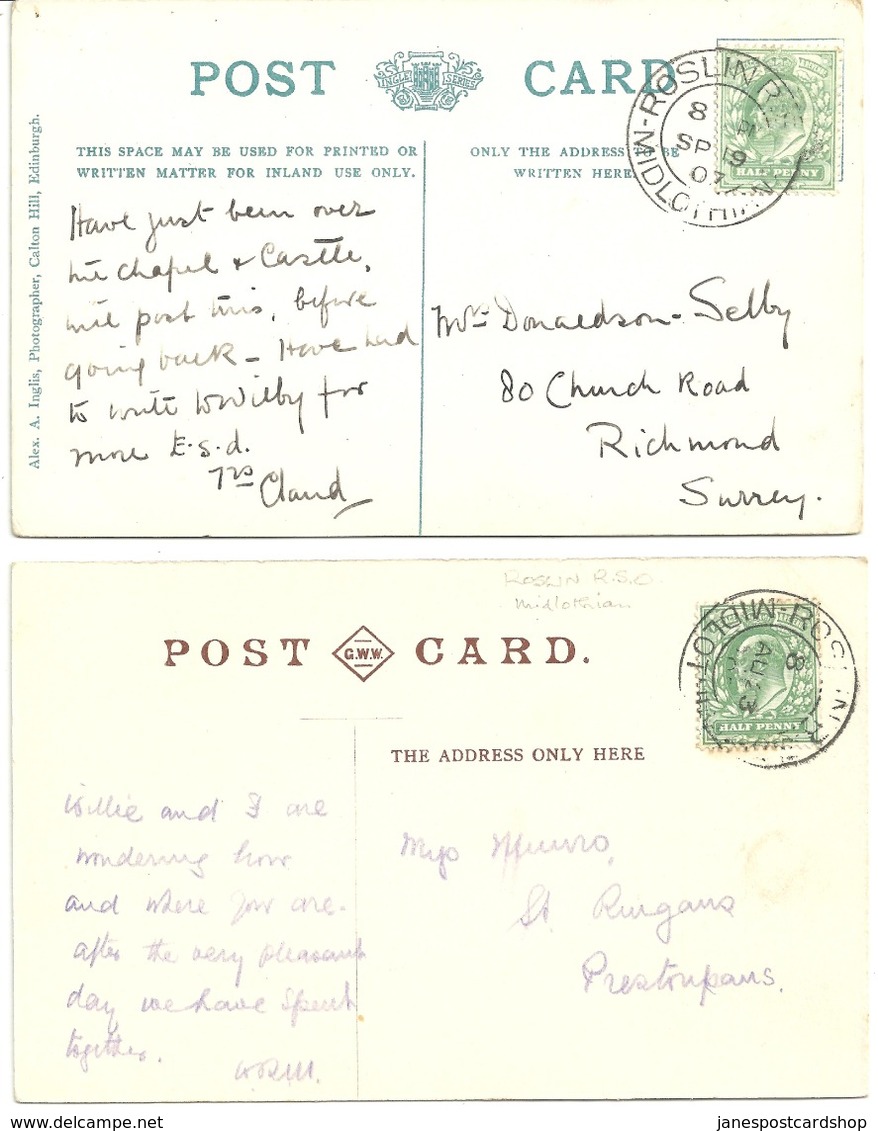 POST CARD
INGLIS SERIES
THIS SPACE MAY BE USED FOR PRINTED OR
WRITTEN MATTER FOR INLAND USE ONLY.
ONLY THE ADDRESS TO BE
WRITTEN HERE
Alex. A. Inglis, Photographer, Calton Hill, Edinburgh.
ROSLIN R.S.O
MIDLOTHIAN
8
SP 19
07
HALF PENNY
Have just been over
the chapel & Castle,
will post this, before
going back - Have had
to write to Wilby for
more £.s.d.
Yrs Claud
Mrs Donaldson-Selby
80 Church Road
Richmond
Surrey.
ROSLIN R.S.O.
Midlothian
POST G.W.W. CARD.
THE ADDRESS ONLY HERE
MIDLOTHIAN
ROSLIN
8
AU 23
HALF PENNY
Willie and I are
wondering how
and where you are.
after the very pleasant
day we have spent
together.
Munro,
St
Prestonpans.
janespostcardshop